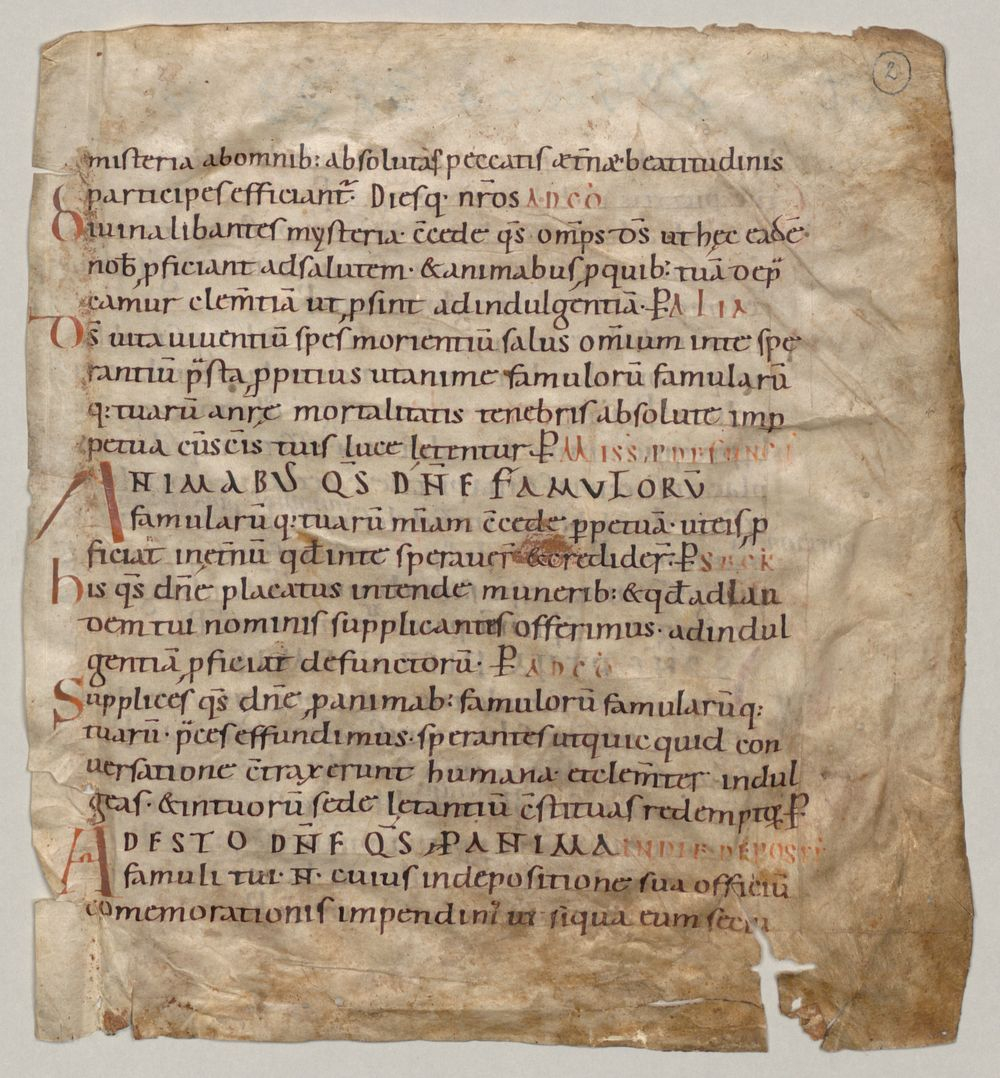 2
misteria abomnib: absolutas peccatis æt̄næ beatitudinis
participes efficiant̄. Diesq· nr̄os ADCŌ
Diuina libantes mysteria· c̄cede qs̄ omp̄s ds̄ ut hęc eadē·
nob̄ ꝓficiant adsalutem· &animabus ꝓquib: tuā dep̄
camur clem̄tiā ut ꝓsint adindulgentiā· P̄ ALIA
Ds̄ uita uiuentiū spes morientiū salus om̄ium inte spe
rantiū p̄sta ꝓpitius utanime famulorū famularū
q: tuarū anr̄e mortalitatis tenebris absolute imp
petua cūsc̄is tuis luce lętentur· P̄ MISS, P DEFUNCT
ANIMABUS QS̄ DN̄E FAMULORŪ
famularū q: tuarū mīam c̄cede ꝑpetuā· uteis ꝓ
ficiat inet̄nū qđ inte sperauer̄ &credider̄· P̄ SECR̄
his qs̄ dn̄e placatus intende munerib: &qđ adlau
dem tui nominis supplicantes offerimus· adindul
gentiā ꝓficiat defunctorū· P̄ ADCŌ
Supplices qs̄ dn̄e ꝓanimab: famulorū famularū q:
tuarū· p̄ces effundimus· sperantes utquic quid con
uersatione c̄traxerunt humana· etclem̄ter indul
geas· &intuorū sede lętantiū c̄stituas redemptoꝝ P̄
ADESTO DN̄E QS̄ ꝓ ANIMA IN DIE DEPOST̄
famuli tui· N̄· cuius indepositione sua officiū
comemorationis impendim' ut siqua eum secu